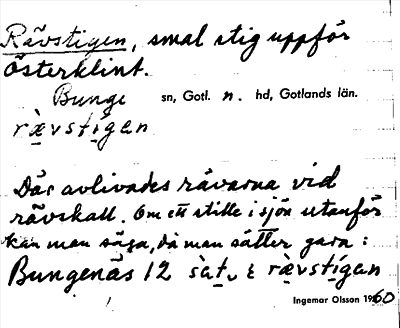 Rävstigen, smal stig uppför
österklint.
Bunge sn, Gotl. n. hd, Gotlands län.
rævstígen
Där avlivades rävarna vid
rävskall. Om ett ställe i sjön utanför
kan man säga, då man sätter garn:
Bungenäs 12 sat, ε rævstígen
Ingemar Olsson 1960